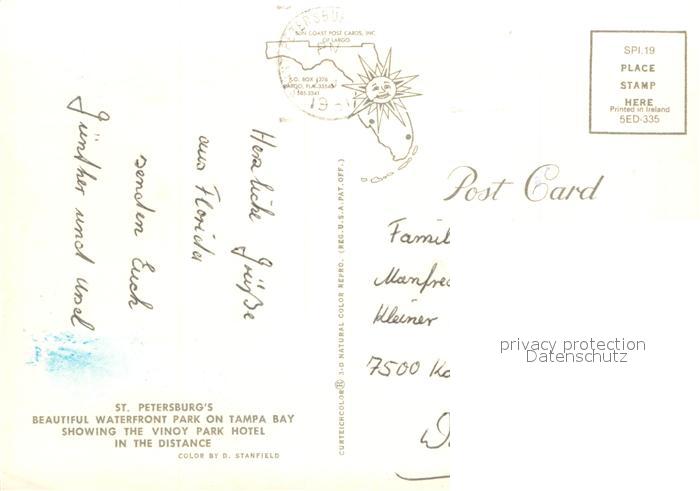 ST. PETERSBURG
PM
SUN COAST POST CARDS, INC.
OF LARGO
P.O. BOX 1276
LARGO, FLA. 33540
585-3341
19
SPI.19
PLACE
STAMP
HERE
Printed in Ireland
5ED-335
Post Card
Herzliche Grüße
aus Florida
senden Euch
Günther und Ursel
Famil
Manfred
Kleiner
7500 Ka
privacy protection
Datenschutz
CURTEICHCOLOR® 3-D NATURAL COLOR REPRO. (REG. U.S.A. PAT. OFF.)
ST. PETERSBURG'S
BEAUTIFUL WATERFRONT PARK ON TAMPA BAY
SHOWING THE VINOY PARK HOTEL
IN THE DISTANCE
COLOR BY D. STANFIELD